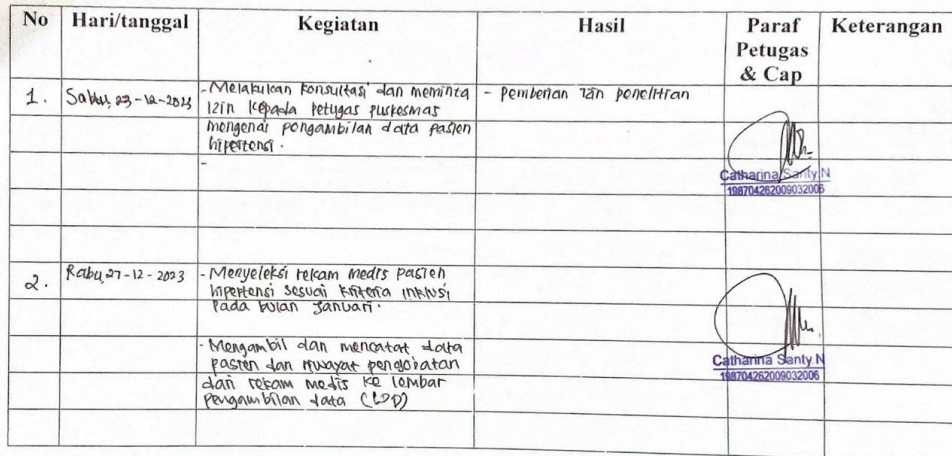 No Hari/tanggal Kegiatan Hasil Paraf Petugas & Cap Keterangan
1. Sabtu, 23-12-2023 - Melakukan konsultasi dan meminta - Pemberian izin penelitian
izin kepada petugas puskesmas
mengenai pengambilan data pasien
hipertensi.
-
Catharina Santy N
198704262009032006
2. Rabu, 27-12-2023 - Menyeleksi rekam medis pasien
hipertensi sesuai kriteria inklusi
pada bulan Januari.
- Mengambil dan mencatat data
pasien dan riwayat pengobatan
dari rekam medis ke lembar
pengambilan data (LPD)
Catharina Santy N
198704262009032006